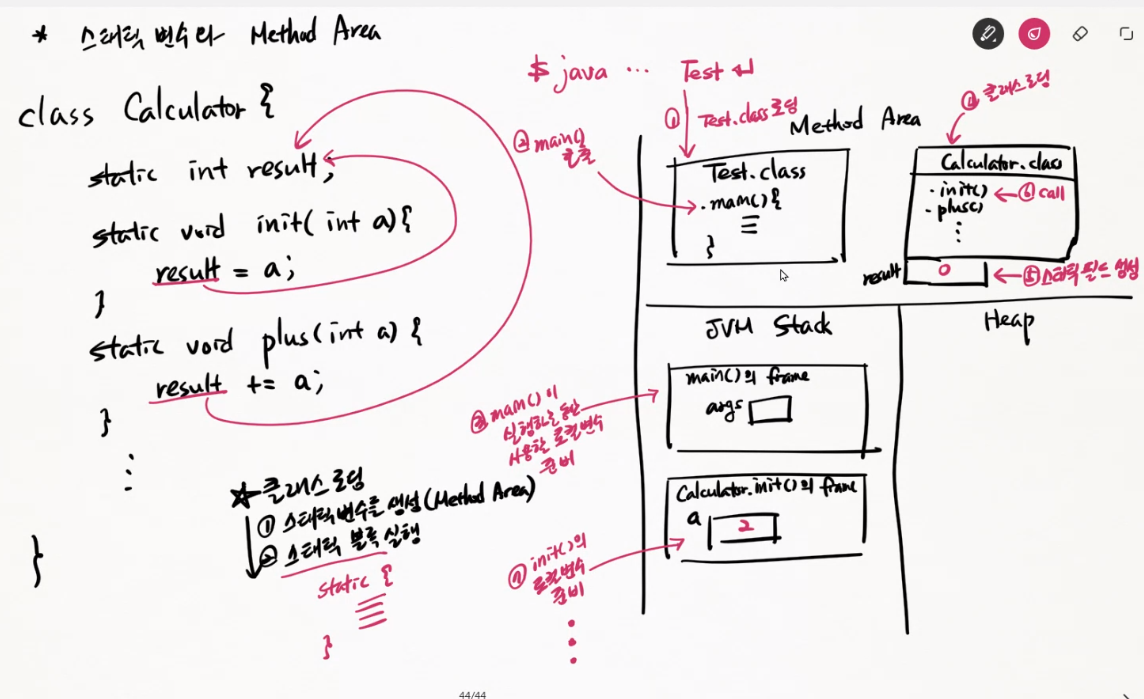 * 스태틱 변수와 Method Area
class Calculator {
static int result;
static void init( int a){
result = a;
}
static void plus(int a) {
result += a;
}
⋮
}
☆ 클래스 로딩
① 스태틱 변수를 생성(Method Area)
② 스태틱 블록 실행
static {
}
$ java ... Test ↵
① Test.class 로딩
② main()
호출
Method Area
Test.class
· main() {
}
④ 클래스로딩
Calculator.class
· init() ← ⑥ call
· plus()
⋮
result 0 ← ⑤ 스태틱 필드 생성
JVM Stack
Heap
③ main()이
실행하는 동안
사용할 로컬변수
준비
main()의 frame
args
Calculator.init()의 frame
a 2
⑦ init()의
로컬변수
준비
⋮
44/44